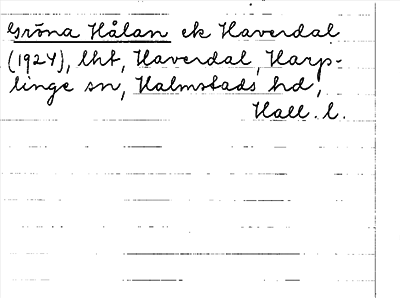 Gröna Hålan ek Haverdal
(1924), lht, Haverdal, Harp-
linge sn, Halmstads hd,
Hall. l.